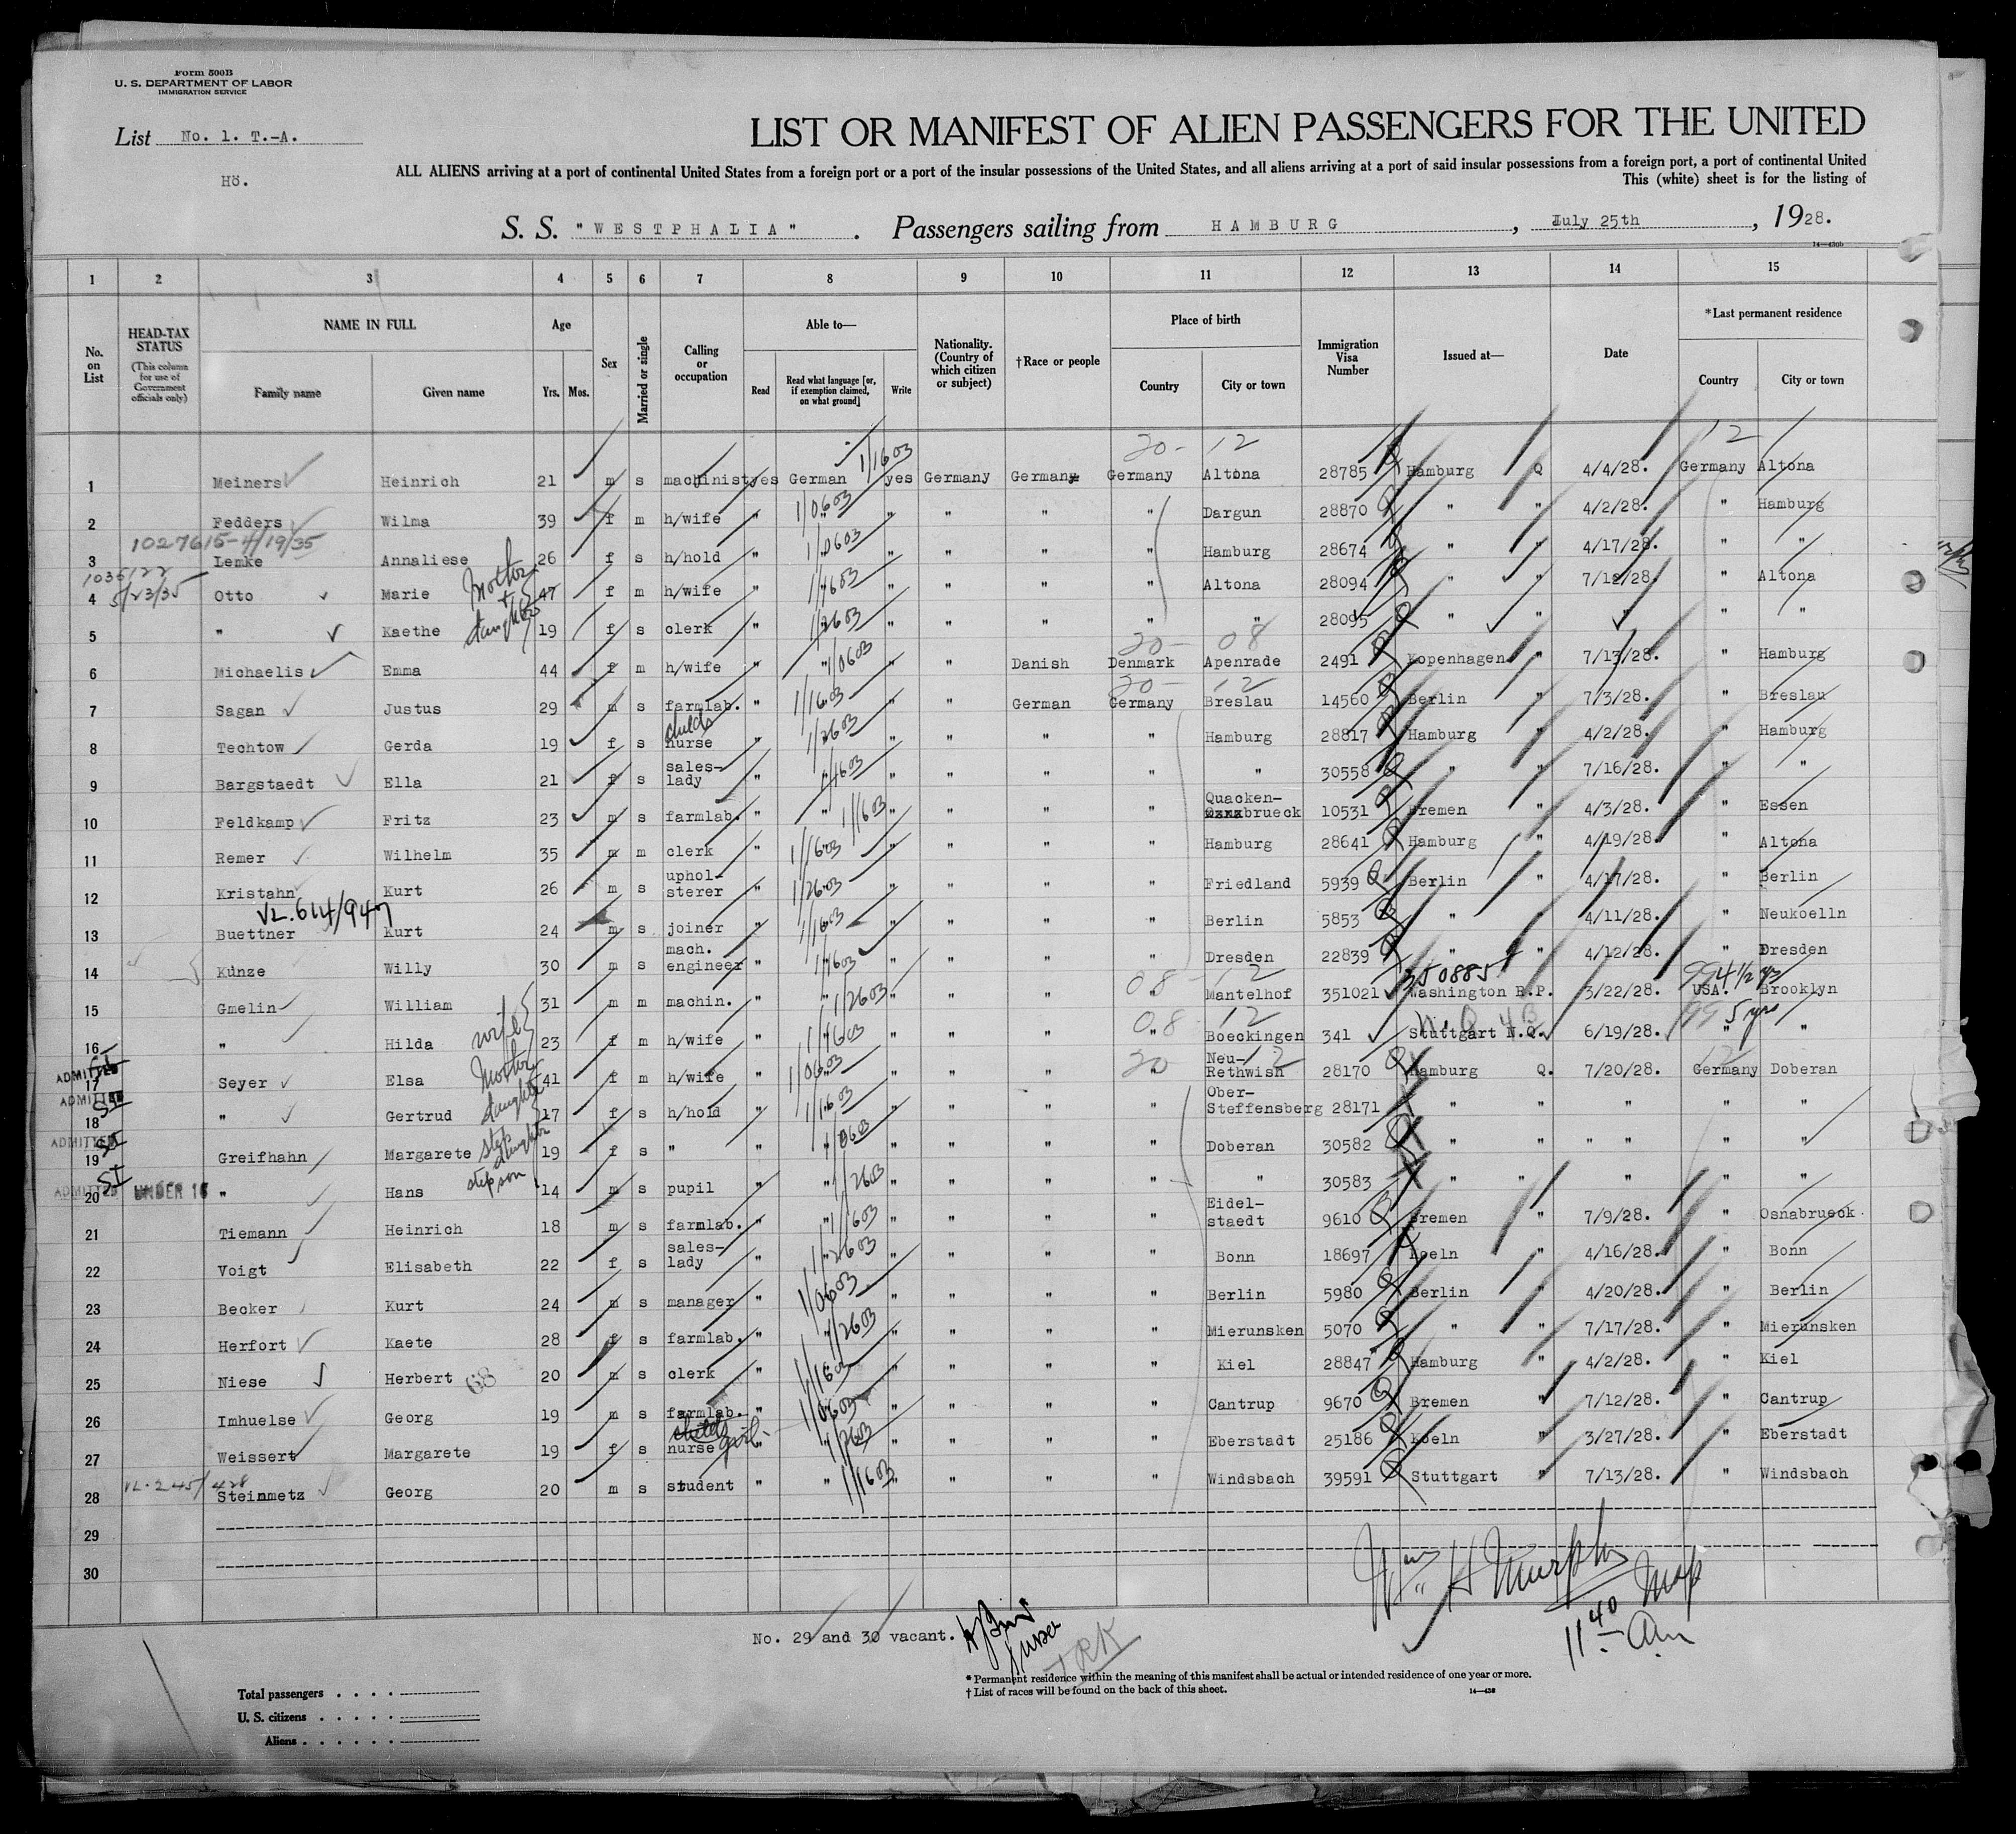 Form 500B
U. S. DEPARTMENT OF LABOR
IMMIGRATION SERVICE
List No. 1. T.-A.
Hö.
LIST OR MANIFEST OF ALIEN PASSENGERS FOR THE UNITED
ALL ALIENS arriving at a port of continental United States from a foreign port or a port of the insular possessions of the United States, and all aliens arriving at a port of said insular possessions from a foreign port, a port of continental United
This (white) sheet is for the listing of
S. S. "WESTPHALIA". Passengers sailing from HAMBURG, July 25th, 1928.
14—430b
1 2 3 4 5 6 7 8 9 10 11 12 13 14 15
No. on List
HEAD-TAX STATUS (This column for use of Government officials only)
NAME IN FULL Family name Given name
Age Yrs. Mos.
Sex
Married or single
Calling or occupation
Able to— Read Read what language [or, if exemption claimed, on what ground] Write
Nationality. (Country of which citizen or subject)
†Race or people
Place of birth Country City or town
Immigration Visa Number
Issued at—
Date
*Last permanent residence Country City or town
20- 12 12
1 Meiners Heinrich 21 m s machinist yes German 1/1603 yes Germany German Germany Altona 28785 Hamburg Q 4/4/28. Germany Altona
2 Fedders Wilma 39 f m h/wife " " 1/0603 " " " " Dargun 28870 " " 4/2/28. " Hamburg
1027615-4/19/35
3 Lemke Annaliese 26 f s h/hold " " 1/0603 " " " " Hamburg 28674 " " 4/17/28. " "
1036122
5/23/35
4 Otto Marie Mother + 47 f m h/wife " " 1/1603 " " " " Altona 28094 " " 7/12/28. " Altona
5 " Kaethe daughter 19 f s clerk " " 1/2603 " " " " " 28095 " " " "
20- 08
6 Michaelis Emma 44 f m h/wife " " 1/0603 " " Danish Denmark Apenrade 2491 Kopenhagen " 7/13/28. " Hamburg
20- 12
7 Sagan Justus 29 m s farmlab. " 1/1603 " " German Germany Breslau 14560 Berlin " 7/3/28. " Breslau
8 Techtow Gerda 19 f s childs nurse " 1/2603 " " " " Hamburg 28817 Hamburg " 4/2/28. " Hamburg
9 Bargstaedt Ella 21 f s sales-lady " " 1/1603 " " " " " 30558 " " 7/16/28. " "
10 Feldkamp Fritz 23 m s farmlab. " " 1/1603 " " " " Quacken-brueck 10531 Bremen " 4/3/28. " Essen
11 Remer Wilhelm 35 m m clerk " 1/1603 " " " " Hamburg 28641 Hamburg " 4/19/28. " Altona
12 Kristahn Kurt 26 m s uphol-sterer " 1/2603 " " " " Friedland 5939 Berlin " 4/17/28. " Berlin
VL.614/947
13 Buettner Kurt 24 m s joiner " 1/1603 " " " " Berlin 5853 " " 4/11/28. " Neukoelln
14 Kunze Willy 30 m s mach. engineer " 1/1603 " " " " Dresden 22839 " " 4/12/28. " Dresden
08- 12 350885 99 4 1/2 yrs
15 Gmelin William 31 m m machin. " " 1/2603 " " " " Mantelhof 351021 Washington R.P. 3/22/28. USA. Brooklyn
08 12 99 5 yrs
16 " Hilda wife 23 f m h/wife " " 1/1603 " " " " Boeckingen 341 Stuttgart N.Q. 6/19/28. " "
20 12 12
ADMITTED
17 Seyer Elsa Mother 41 f m h/wife " 1/0603 " " " " Neu-Rethwish 28170 Hamburg Q. 7/20/28. Germany Doberan
ADMITTED SI
18 " Gertrud daughter 17 f s h/hold " 1/1603 " " " " Ober-Steffensberg 28171 " " " " "
ADMITTED SI
19 Greifhahn Margarete step daughter 19 f s " " " 1/0603 " " " " Doberan 30582 " " " " " "
ADMITTED SI
20 UNDER 16 " Hans step son 14 m s pupil " " 1/2603 " " " " " 30583 " " " " "
21 Tiemann Heinrich 18 m s farmlab. " " 1/1603 " " " " Eidel-staedt 9610 Bremen " 7/9/28. " Osnabrueck
22 Voigt Elisabeth 22 f s sales-lady " " 1/2603 " " " " Bonn 18697 Koeln " 4/16/28. " Bonn
23 Becker Kurt 24 m s manager " 1/0603 " " " " Berlin 5980 Berlin " 4/20/28. " Berlin
24 Herfort Kaete 28 f s farmlab. " " 1/2603 " " " " Mierunsken 5070 " " 7/17/28. " Mierunsken
25 Niese Herbert 68 20 m s clerk " 1/1603 " " " " Kiel 28847 Hamburg " 4/2/28. " Kiel
26 Imhuelse Georg 19 m s farmlab. " 1/0603 " " " " Cantrup 9670 Bremen " 7/12/28. " Cantrup
27 Weissert Margarete 19 f s childs nurse girl " " 1/2603 " " " " Eberstadt 25186 Koeln " 3/27/28. " Eberstadt
VL.245/428
28 Steinmetz Georg 20 m s student " " 1/1603 " " " " Windsbach 39591 Stuttgart " 7/13/28. " Windsbach
29
30
Wm H Murphy
11 40 Am
No. 29 and 30 vacant.
JRK
* Permanent residence within the meaning of this manifest shall be actual or intended residence of one year or more.
† List of races will be found on the back of this sheet.
14—430
Total passengers . . . .
U. S. citizens . . . . .
Aliens . . . . . .